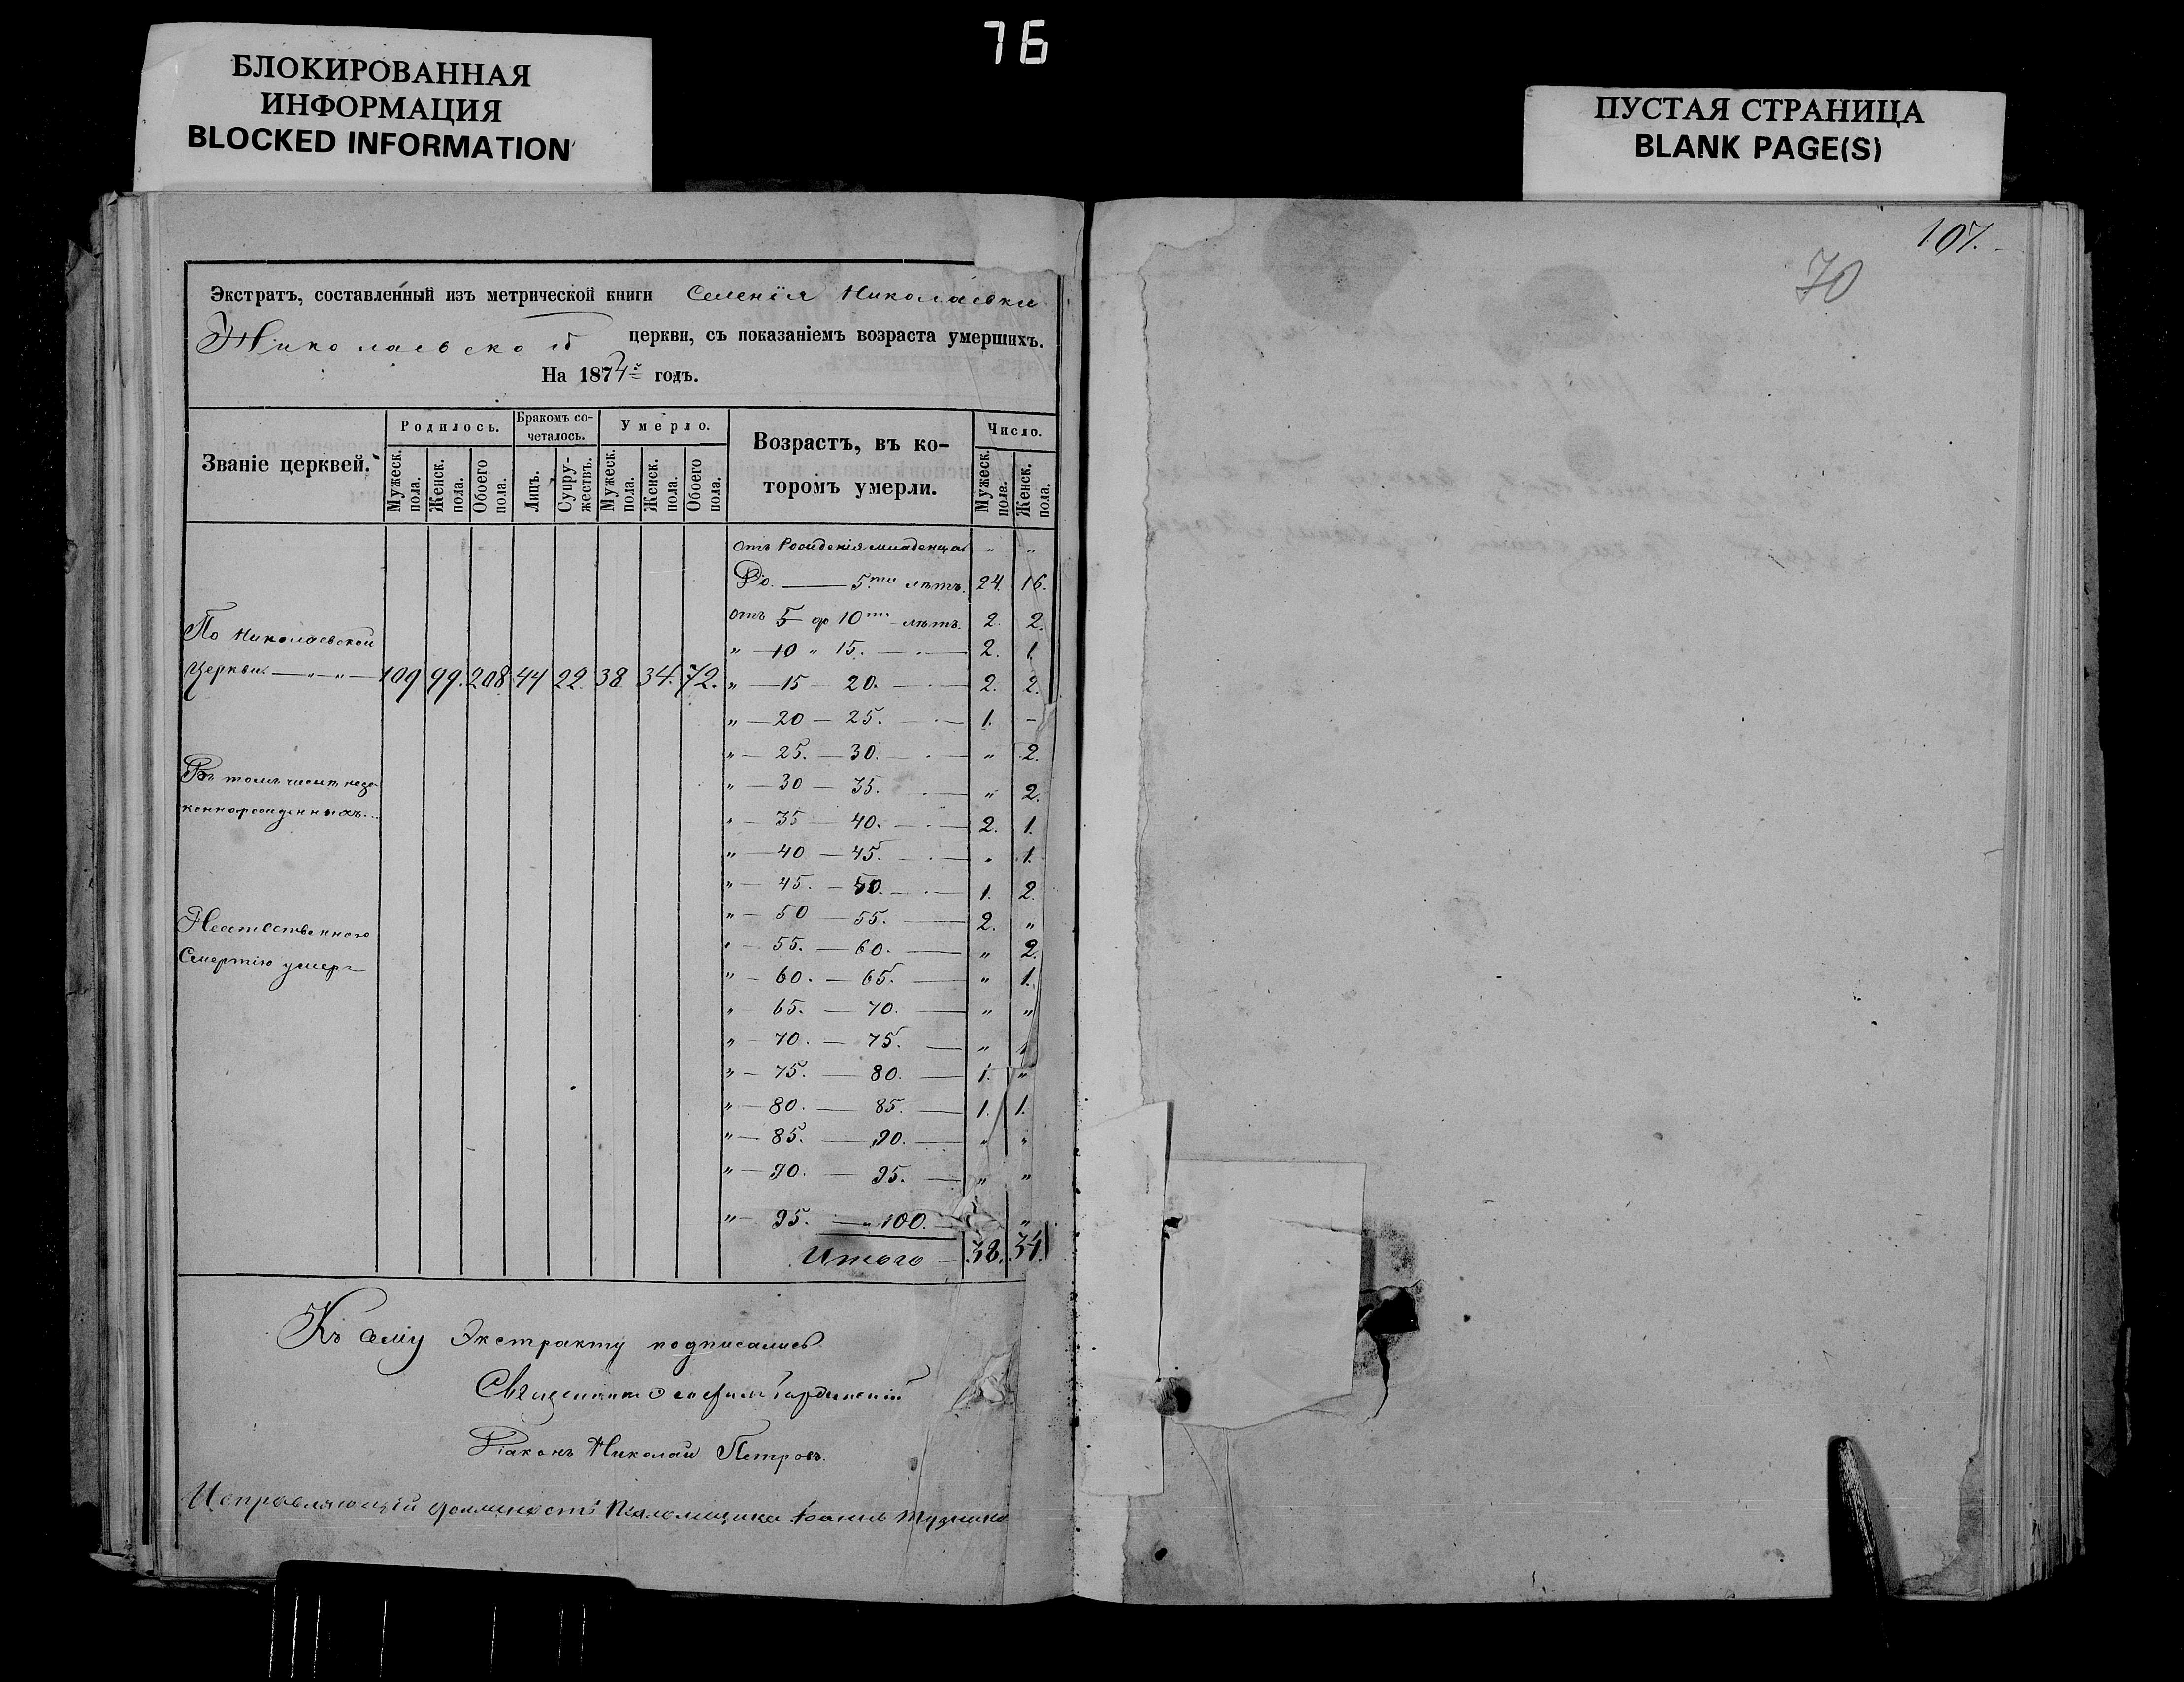 76
БЛОКИРОВАННАЯ
ИНФОРМАЦИЯ
BLOCKED INFORMATION
ПУСТАЯ СТРАНИЦА
BLANK PAGE(S)
107.
70
Экстратъ, составленный изъ метрической книги Селенія Николаевки
Николаевской церкви, съ показаніемъ возраста умершихъ.
На 1874й годъ.
Званіе церквей.
Родилось.
Бракомъ сочеталось.
Умерло.
Возрастъ, въ которомъ умерли.
Число.
Мужеск. пола.
Женск. пола.
Обоего пола.
Лицъ.
Супружествъ.
Мужеск. пола.
Женск. пола.
Обоего пола.
Мужеск. пола.
Женск. пола.
отъ Рожденія младенца „ „
До — 5ти лѣтъ. 24. 16.
отъ 5 до 10ти лѣтъ. 2. 2.
По Николаевской
„ — 10 „ 15. — 2. 1.
Церкви — „ — „ — 109 99. 208 44 22. 38 34. 72.
„ — 15 — 20. — 2. 2.
„ — 20 — 25. — 1. –
„ — 25. — 30. — „ 2.
Въ томъ числѣ незаконнорожденныхъ...
„ — 30 — 35. — „ 2.
„ — 35 — 40. — 2. 1.
„ — 40 — 45. — „ 1.
„ — 45. — 50. — 1. 2.
Неестественною
„ — 50 — 55. — 2. „
Смертію умерл
„ — 55. — 60. — „ 2.
„ — 60. — 65. — „ 1.
„ — 65. — 70. — „ „
„ — 70. — 75. — „ „
„ — 75. — 80. — 1. „
„ — 80. — 85. — 1. 1.
„ — 85. — 90. — „ „
„ — 90. — 95. — „ „
„ — 95. — „ 100. — „
Итого — 38. 34.
Къ сему Экстракту подписались
Священникъ
Діаконъ Николай Петровъ.
Исправляющій должность Псаломщика